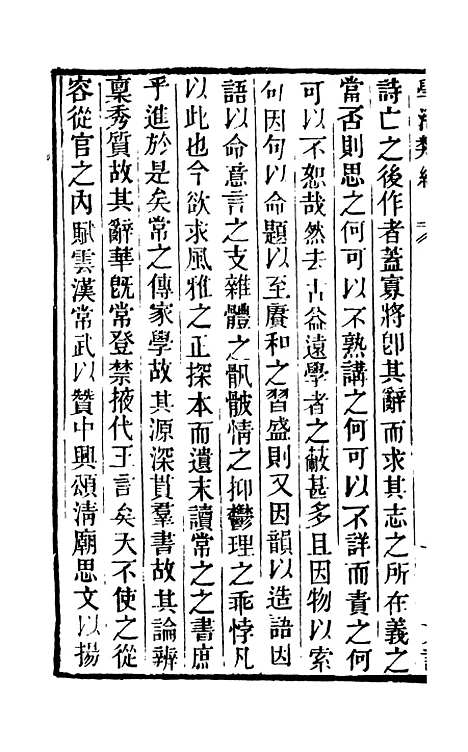 學海類編
詩亡之後作者蓋寡將卽其辭而求其志之所在義之
當否則思之何可以不熟講之何可以不詳而責之何
可以不恕哉然去古益遠學者之蔽甚多且因物以索
句因句以命題以至賡和之習盛則又因韻以造語因
語以命意言之支雜體之骫骳情之抑鬱理之乖悖凡
以此也今欲求風雅之正探本而遺末讀常之之書庶
乎進於是矣常之傳家學故其源深貫羣書故其論辨
稟秀質故其辭華旣常登禁掖代王言矣天不使之從
容從官之內賦雲漢常武以贊中興頌淸廟思文以揚